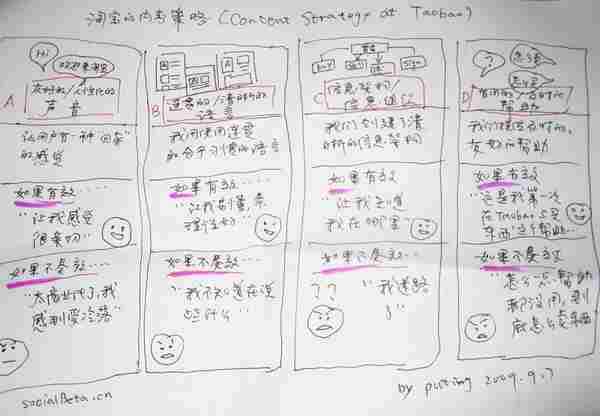 淘宝的内容策略 (Content Strategy at Taobao)
Hi
欢迎来淘宝
A
友好的/个性化的
声音
让用户有一种"回家"
的感觉
如果有效……
"让我感觉
很亲切"
如果不奏效……
"太商业化了,我
感到受冷落"
B
适当的/清晰的
语言
我们使用适当
如果有效……
"让我
如果不奏效……
"我不知道在说
些什么"
C
信息架构/
我们创建了清
晰的信息架构
如果有效
"让我知道
我在哪里"
如果不奏效…
? ?
"我迷路
了"
?
怎么卖
怎么买
D
有用的/及时的
帮助
我们提供及时的,
友好的帮助
如果有效
"这是我第一次
在Taobao上买
东西
如果不奏效…
帮助
都没用,到
底怎么卖东西
socialBeta.cn
by 2009.9.7